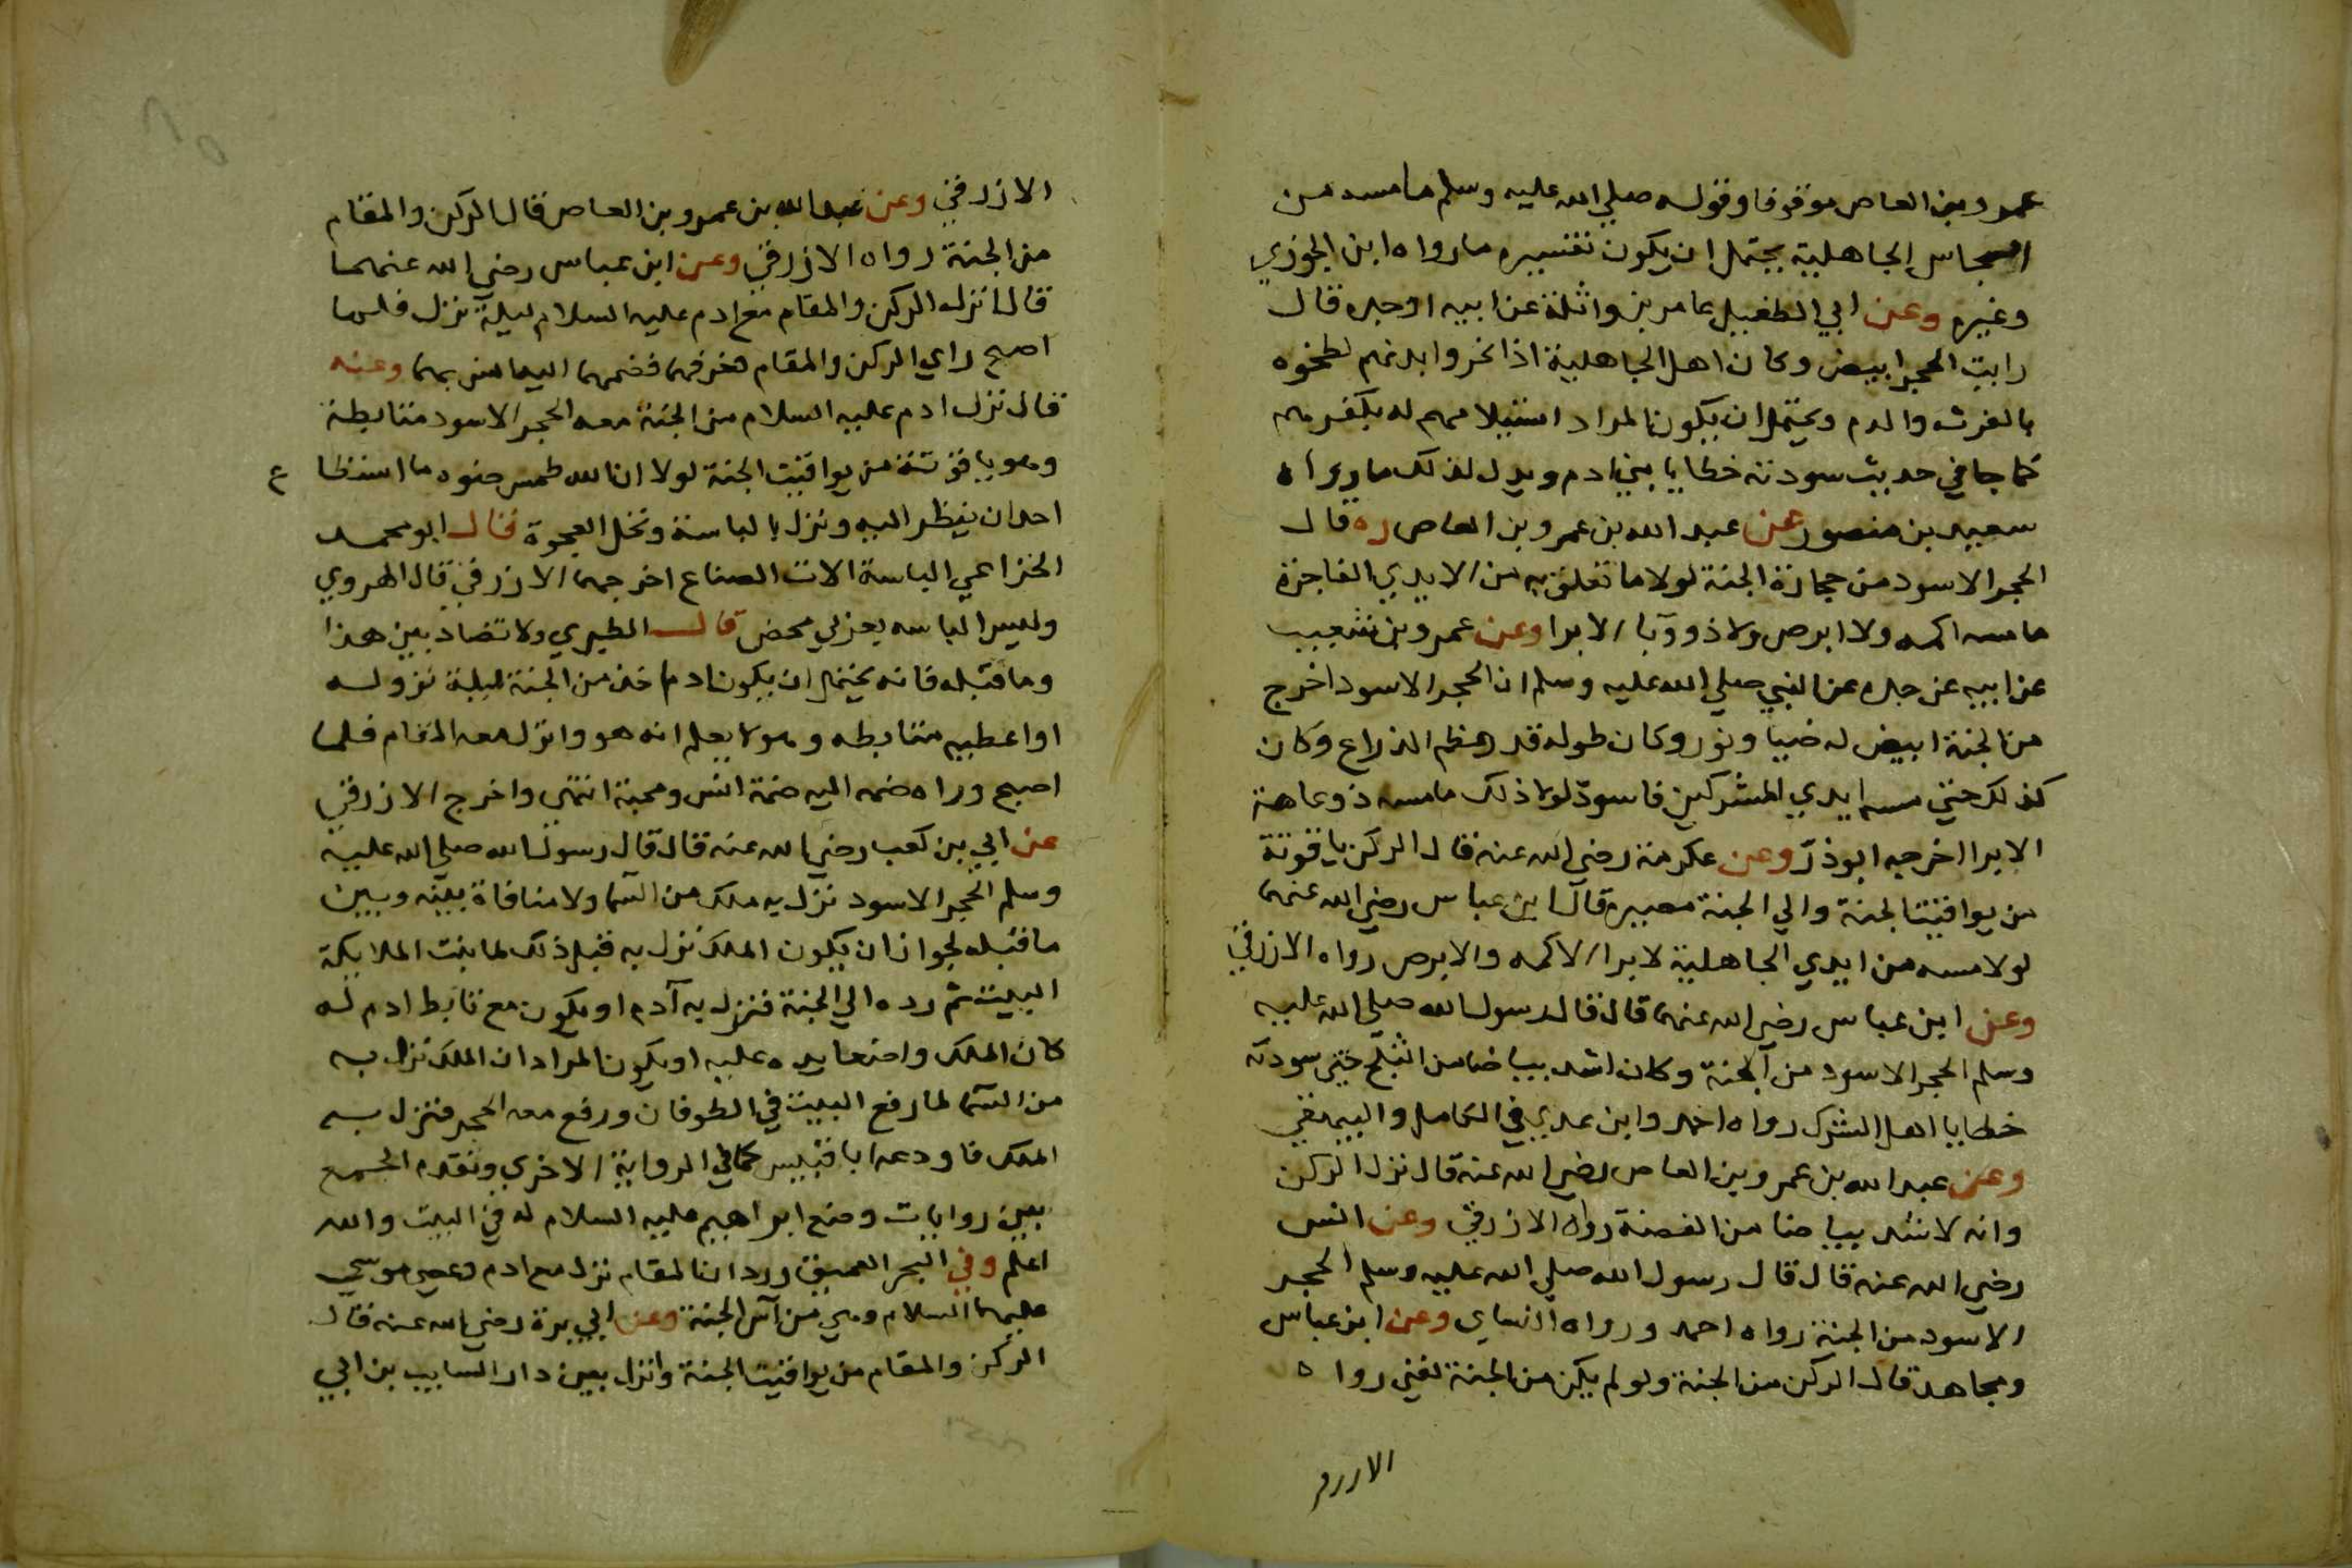 عمرو بن العاص موقوفا وقوله صلي الله عليه وسلم ما مسه من
انجاس الجاهلية يحتمل ان يكون تفسيره ما رواه ابن الجوزي
وغيره وعن ابي الطفيل عامر بن واثلة عن ابيه او جده قال
رايت الحجر ابيض وكان اهل الجاهلية اذا نحروا بدنهم لطخوه
بالفرث والدم ويحتمل ان يكون المراد استيلامهم له بكفرهم
كما جا في حديث سودته خطايا بني ادم ويدل لذلك ما رواه
سعيد بن منصور عن عبد الله بن عمرو بن العاص ره قال
الحجر الاسود من حجارة الجنة لولا ما تعلق به من الايدي الفاجرة
ما مسه اكمه ولا ابرص ولا ذو وبا الا برا وعن عمرو بن شعيب
عن ابيه عن جده عن النبي صلي الله عليه وسلم ان الحجر الاسود اخرج
من الجنة ابيض له ضيا ونور وكان طوله قدر عظم الذراع وكان
كذلك حتي مسه ايدي المشركين فاسودّ لولا ذلك ما مسه ذو عاهة
الا برا اخرجه ابو ذرّ وعن عكرمة رضي الله عنه قال الركن ياقوتة
من يواقيت الجنة والي الجنة مصيره قال ابن عباس رضي الله عنهما
لولا مسه من ايدي الجاهلية لابرا الاكمه والابرص رواه الازرقي
وعن ابن عباس رضي الله عنهما قال قال رسول الله صلي الله عليه
وسلم الحجر الاسود من الجنة وكان اشد بياضا من الثلج حتي سودته
خطايا اهل الشرك رواه احمد وابن عدي في الكامل والبيهقي
وعن عبد الله بن عمرو بن العاص رضي الله عنه قال نزل الركن
وانه لاشد بياضا من الفضة رواه الازرقي وعن انس
رضي الله عنه قال قال رسول الله صلي الله عليه وسلم الحجر
الاسود من الجنة رواه احمد ورواه النساي وعن ابن عباس
ومجاهد قال الركن من الجنة ولو لم يكن من الجنة لفني رواه
الازرقي
الازرقي وعن عبد الله بن عمرو بن العاص قال الركن والمقام
من الجنة رواه الازرقي وعن ابن عباس رضي الله عنهما
قال انزل الركن والمقام مع ادم عليه السلام ليلة نزل فلما
اصبح راي الركن والمقام فعرفهما فضمهما اليه وانس بهما وعنه
قال نزل ادم عليه السلام من الجنة معه الحجر الاسود متابطة
وهو ياقوتة من يواقيت الجنة لولا ان الله طمس ضوه ما استطا ع
احد ان ينظر اليه ونزل بالباسنة ونخل العجوة قال ابو محمد
الخزاعي الباسنة الات الصناع اخرجهما الازرقي قال الهروي
وليس الباسه بعربي محض قال الطبري ولا تضاد بين هذا
وما قبله فانه يحتمل ان يكون ادم اخذ من الجنة ليلة نزوله
او اعطيه متابطه وهو لا يعلم انه هو وانزل معه المقام فلما
اصبح وراه ضمه اليه ضمة انس ومحبة انتهي واخرج الازرقي
عن ابي بن كعب رضي الله عنه قال قال رسول الله صلي الله عليه
وسلم الحجر الاسود نزل به ملك من السما ولا منافاة بينه وبين
ما قبله لجواز ان يكون الملك نزل به قبل ذلك لما بنت الملايكة
البيت ثم رده الي الجنة فنزل به آدم او يكون مع تابط ادم له
كان الملك واضعا يده عليه او يكون المراد ان الملك نزل به
من السما لما رفع البيت في الطوفان ورفع معه الحجر فنزل به
الملك فاودعه ابا قبيس كما في الرواية الاخري وتقدم الجمع
بين روايات وضع ابراهيم عليه السلام له في البيت والله
اعلم وفي البحر العميق ورد ان المقام نزل مع ادم وعصي موسي
عليهما السلام وهي من آس الجنة وعن ابي بزة رضي الله عنه قال
الركن والمقام من يواقيت الجنة وانزل بين دار السايب بن ابي